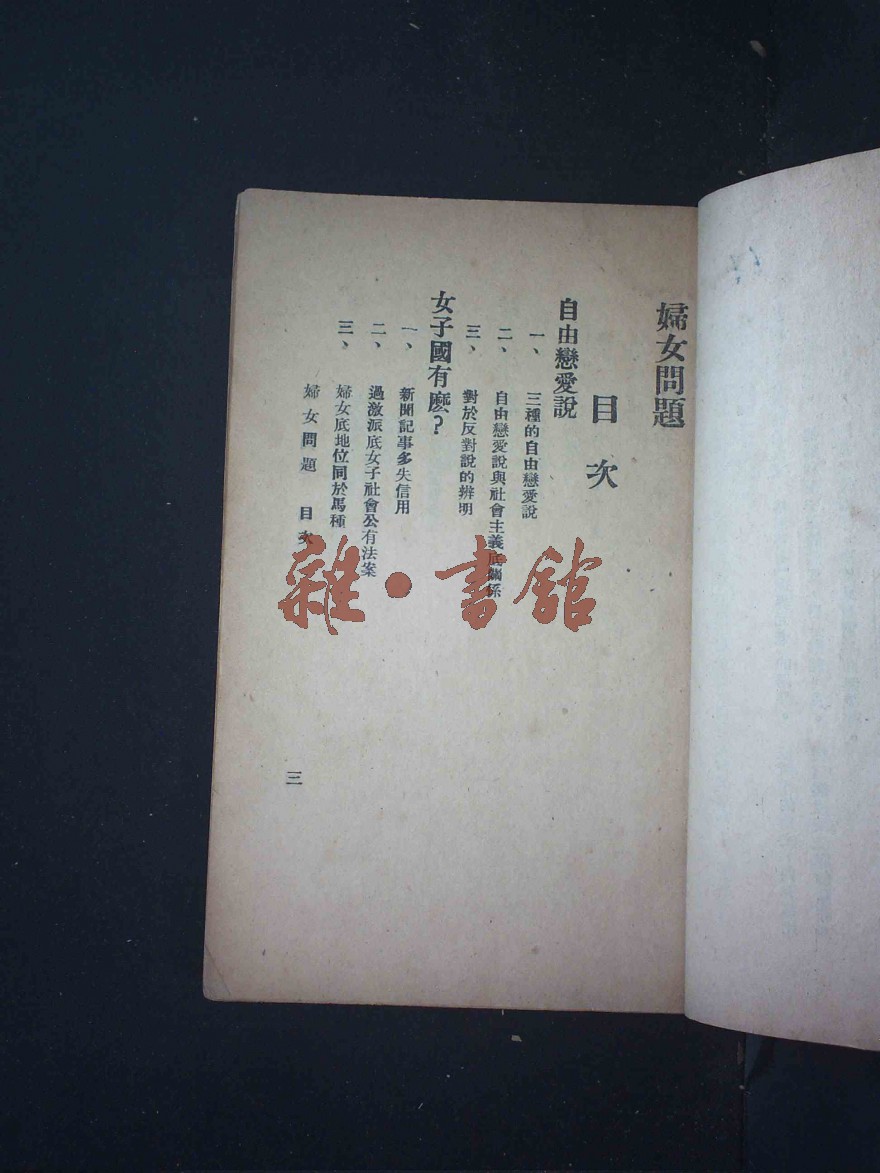 婦女問題
目次
自由戀愛說
一、三種的自由戀愛說
二、自由戀愛說與社會主義底關係
三、對於反對說的辨明
女子國有麽?
一、新聞記事多失信用
二、過激派底女子社會公有法案
三、婦女底地位同於馬種
婦女問題 目次
三
雜·書館